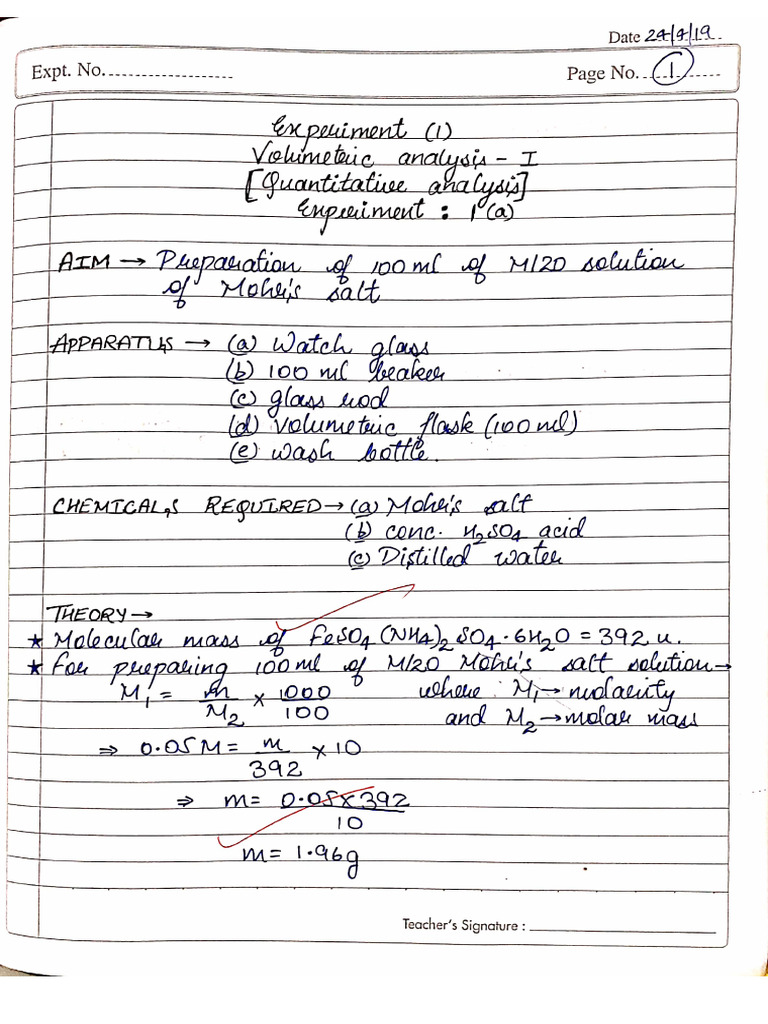 Date 24/4/19
Expt. No.
Page No. 1
Experiment (1)
Volumetric analysis - I
[Quantitative analysis]
Experiment : 1 (a)
AIM → Preparation of 100 ml of M/20 solution
of Mohr's salt
APPARATUS → (a) Watch glass
(b) 100 ml beaker
(c) glass rod
(d) volumetric flask (100 ml)
(e) wash bottle.
CHEMICALS REQUIRED → (a) Mohr's salt
(b) conc. H₂SO₄ acid
(c) Distilled water
THEORY →
★ Molecular mass of FeSO₄(NH₄)₂SO₄·6H₂O = 392 u.
★ For preparing 100 ml of M/20 Mohr's salt solution →
M₁ = m/M₂ × 1000/100 where M₁ → molarity
and M₂ → molar mass
⇒ 0.05M = m/392 × 10
⇒ m = 0.05 × 392/10
m = 1.96g
Teacher's Signature :